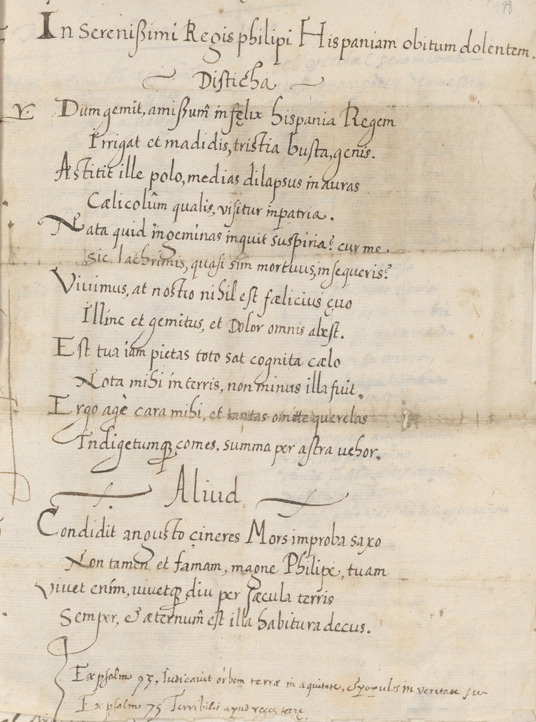 In Sereniſsimi Regis philipi Hispaniam obitum dolentem.
Disticha
Dum gemit, amiſsum̄ infęlix hispania Regem
Irrigat et madidis, tristia busta, genis.
Astitit ille polo, medias dilapsus in auras
Cælicolum̄ qualis, visitur in patria.
Nata quid ingeminas inquit suspiria? cur me
Sic lachrimis, quasi sim mortuus, insequeris?
Viuimus, at nostro nihil est fælicius çuo
Illinc et gemitus, et Dolor omnis abest.
Est tua iam pietas toto sat cognita cælo
Nota mihi in terris, non minus illa fuit.
Ergo age cara mihi, et tantas omitte querelas
Indigetumq; comes, summa per astra vehor.
Aliud
Condidit angusto çineres Mors improba saxo
Non tamen et famam, magne Philipe, tuam
Viuet enim, uiuetq; diu per sæcula terris
Semper, & æternum̄ est illa habitura decus.
Ex psalm 95. Iudicauit orbem terræ in æquitate, & populos in veritate su
Ex psalm 75 Terribilis apud reges terre